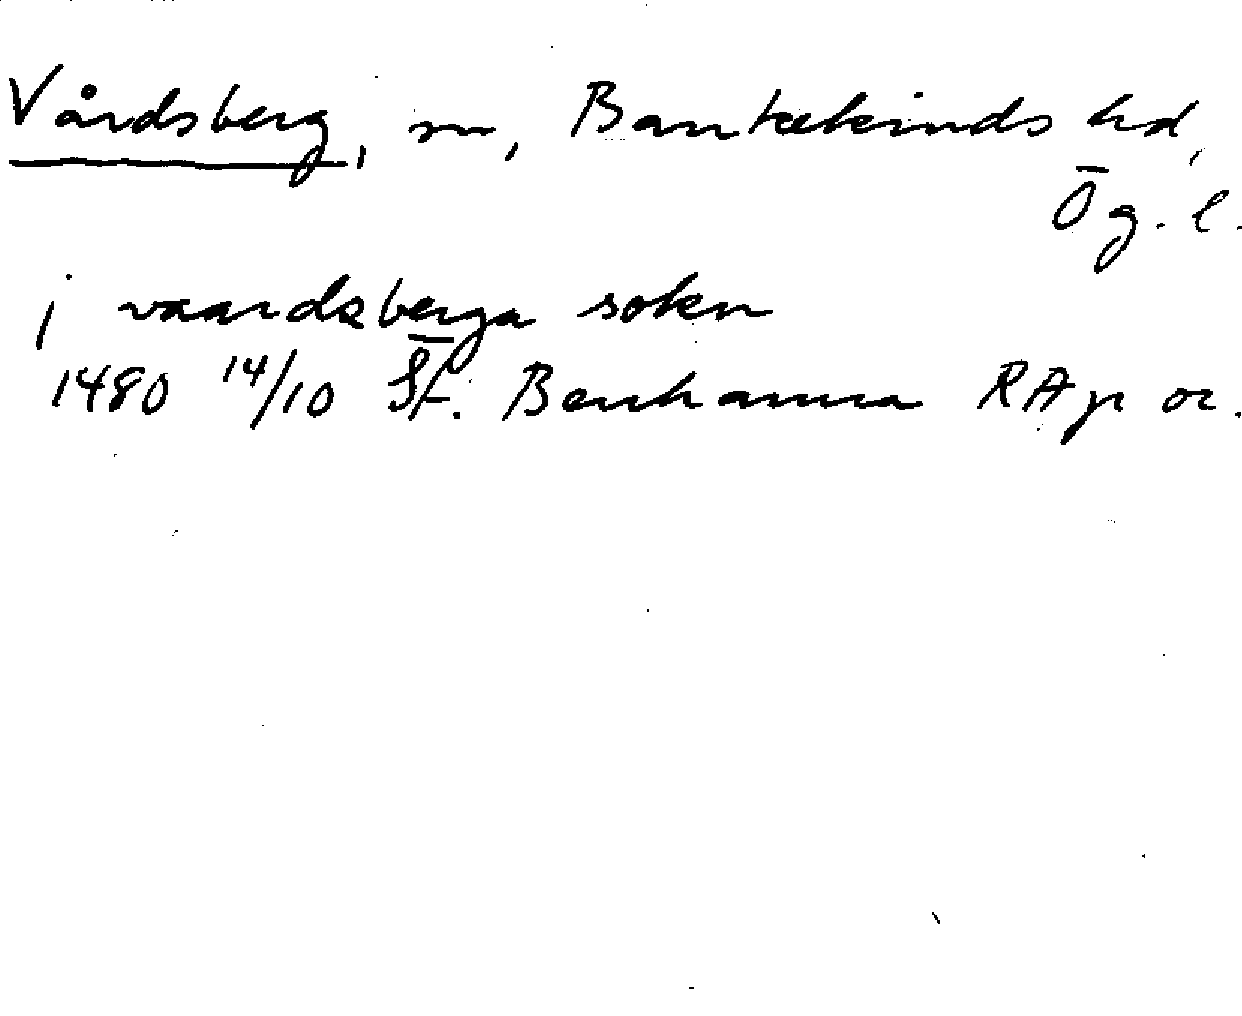 Vårdsberg, sn, Bankekinds hd,
Ög. l.
j vaardzberga sokn
1480 14/10 Sf. Benhamra RAp or.